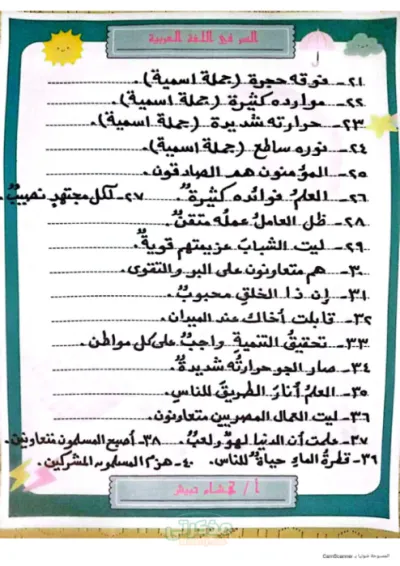 السر في اللغة العربية
٢١- فوقه حجرة (جملة اسمية).
٢٢- موارده كثيرة (جملة اسمية).
٢٣- حرارته شديدة (جملة اسمية).
٢٤- نوره ساطع (جملة اسمية).
٢٥- المؤمنون هم الصادقون.
٢٦- العلمُ فوائده كثيرةٌ. ٢٧- لكل مجتهدٍ نصيبٌ.
٢٨- ظل العاملُ عملُه متقنٌ.
٢٩- ليت الشبابَ عزيمتهم قويةٌ.
٣٠- هم متعاونون على البر والتقوى.
٣١- إن ذا الخلقِ محبوبٌ.
٣٢- قابلت أخاك عند الميدان.
٣٣- تحقيقُ التنميةِ واجبٌ على كل مواطن.
٣٤- صار الجو حرارتُه شديدةٌ.
٣٥- العلمُ أنارَ الطريقَ للناس.
٣٦- ليت العمال المصريين متعاونون.
٣٧- علمت أن الدنيا لهوٌ ولعبٌ. ٣٨- أصبح المسلمون متعاونين.
٣٩- قطرةُ الماءِ حياةٌ للناس. ٤٠- هزم المسلمون المشركين.
أ/ هشام
مذكرتي
الممسوحة ضوئيا بـ CamScanner